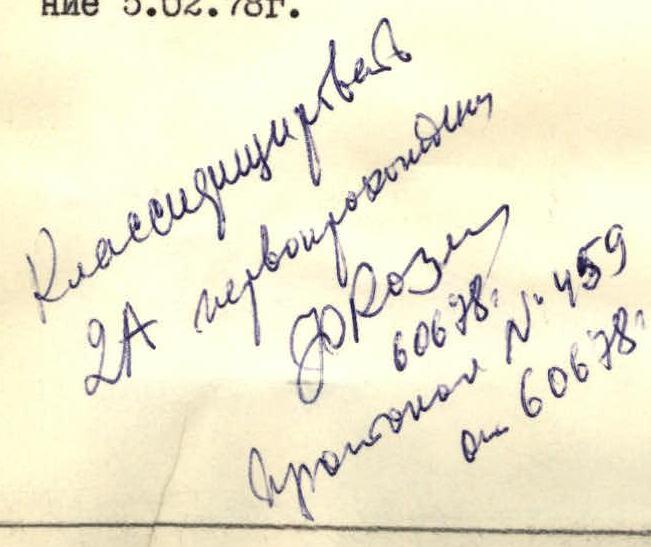 ние 5.02.78г.
Классифицировать
2А первопрохождение
60678г
Протокол № 459
от 60678г